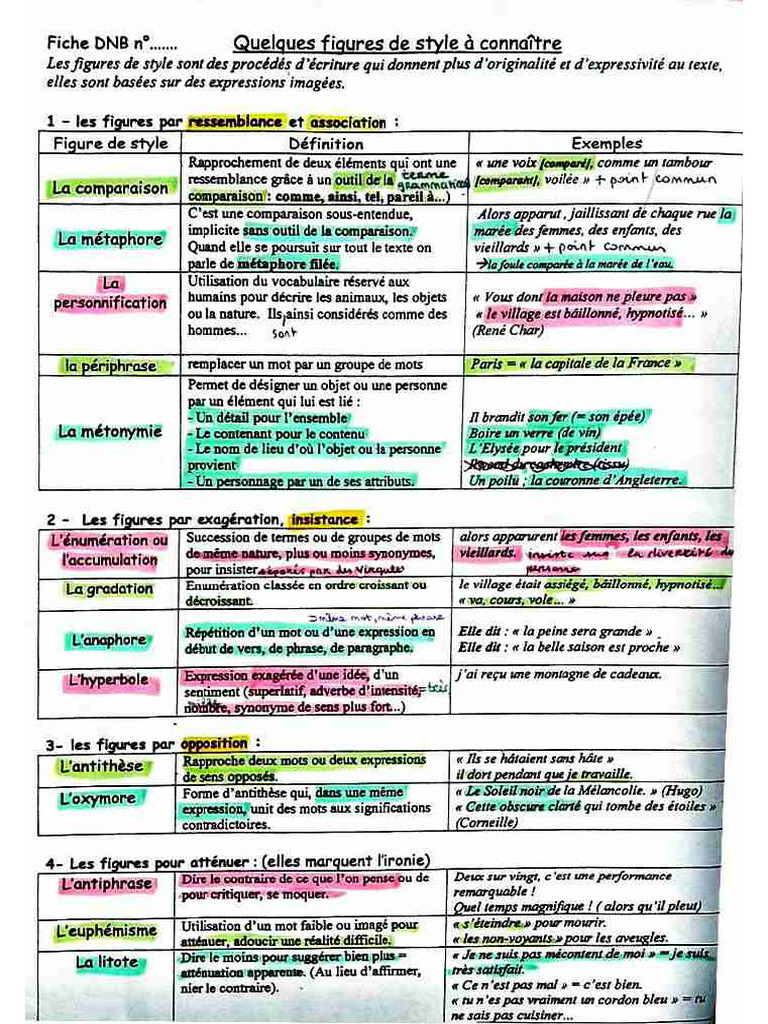 Fiche DNB n°.......
Quelques figures de style à connaître
Les figures de style sont des procédés d'écriture qui donnent plus d'originalité et d'expressivité au texte,
elles sont basées sur des expressions imagées.
1 – les figures par ressemblance et association :
Figure de style
Définition
Exemples
La comparaison
Rapprochement de deux éléments qui ont une
ressemblance grâce à un outil de la terme
grammatical
comparaison : comme, ainsi, tel, pareil à...)
« une voix [comparé], comme un tambour
[comparant], voilée » + point commun
La métaphore
C'est une comparaison sous-entendue,
implicite sans outil de la comparaison.
Quand elle se poursuit sur tout le texte on
parle de métaphore filée.
Alors apparut, jaillissant de chaque rue la
marée des femmes, des enfants, des
vieillards » + point commun
→la foule comparée à la marée de l'eau.
La
personnification
Utilisation du vocabulaire réservé aux
humains pour décrire les animaux, les objets
ou la nature. Ils ainsi considérés comme des
hommes... sont
« Vous dont la maison ne pleure pas »
« le village est bâillonné, hypnotisé... »
(René Char)
la périphrase
remplacer un mot par un groupe de mots
Paris = « la capitale de la France »
La métonymie
Permet de désigner un objet ou une personne
par un élément qui lui est lié :
- Un détail pour l'ensemble
- Le contenant pour le contenu
- Le nom de lieu d'où l'objet ou la personne
provient
- Un personnage par un de ses attributs.
Il brandit son fer (= son épée)
Boire un verre (de vin)
L'Elysée pour le président
Un poilu ; la couronne d'Angleterre.
2 - Les figures par exagération, insistance :
L'énumération ou
l'accumulation
Succession de termes ou de groupes de mots
de même nature, plus ou moins synonymes,
pour insister séparés par des virgules
alors apparurent les femmes, les enfants, les
vieillards. insiste sur la diversité de
personne
La gradation
Enumération classée en ordre croissant ou
décroissant.
le village était assiégé, bâillonné, hypnotisé...
« va, cours, vole... »
L'anaphore
même mot, même phrase
Répétition d'un mot ou d'une expression en
début de vers, de phrase, de paragraphe.
Elle dit : « la peine sera grande »
Elle dit : « la belle saison est proche »
L'hyperbole
Expression exagérée d'une idée, d'un
sentiment (superlatif, adverbe d'intensité, = très
nombre, synonyme de sens plus fort...)
j'ai reçu une montagne de cadeaux.
3- les figures par opposition :
L'antithèse
Rapproche deux mots ou deux expressions
de sens opposés.
« Ils se hâtaient sans hâte »
il dort pendant que je travaille.
L'oxymore
Forme d'antithèse qui, dans une même
expression, unit des mots aux significations
contradictoires.
« Le Soleil noir de la Mélancolie. » (Hugo)
« Cette obscure clarté qui tombe des étoiles »
(Corneille)
4- Les figures pour atténuer : (elles marquent l'ironie)
L'antiphrase
Dire le contraire de ce que l'on pense ou de
pour critiquer, se moquer.
Deux sur vingt, c'est une performance
remarquable !
Quel temps magnifique ! ( alors qu'il pleut)
L'euphémisme
Utilisation d'un mot faible ou imagé pour
atténuer, adoucir une réalité difficile.
« s'éteindre » pour mourir.
« les non-voyants » pour les aveugles.
La litote
Dire le moins pour suggérer bien plus =
atténuation apparente. (Au lieu d'affirmer,
nier le contraire).
« Je ne suis pas mécontent de moi » = je suis
très satisfait.
« Ce n'est pas mal » = c'est bien.
« tu n'es pas vraiment un cordon bleu » = tu
ne sais pas cuisiner...